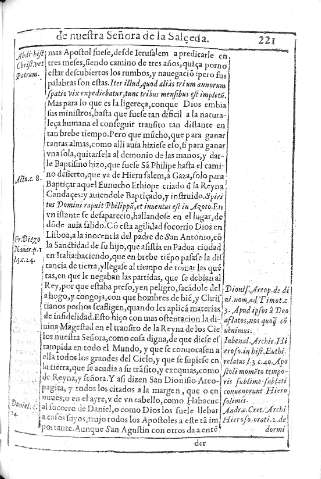 de nuestra Señora de la Salceda. 221
Abdi. hist.
Christ. vet.
Patrum.
mas Apostol fuese, desde Ierusalem a predicarle en
tres meses, siendo camino de tres años, quiça porno
estar descubiertos los rumbos, y nauegaciõ pero sus
palabras son estas. Iter illud, quod aliàs trium annorum
spatio vix expediebatur, tunc tribus mensibus est impletũ.
Mas para lo que es la ligereça, conque Dios embia
sus ministros, basta que fuese tan dificil a la natura-
leça humana el conseguir transito tan distante en
tan brebe tiempo. Pero que mucho, que para ganar
tantas almas, como alli auia hiziese eso, si para ganar
vna sola, quitarsela al demonio de las manos, y dar-
le Baptismo hizo, que fuese Sã Philipe hasta el cami-
Acto. c. 8.
no desierto, que va de Hierusalem, à Gaza, solo para
Baptiçar aquel Eunucho Ethiope criado d̃ la Reyna
Candaçes: y autendole Baptiçido, y instruido. Spiri-
tus Domini rapuit Philippũ, et inuentus est in Azoto. En
vn istante se desaparecio, hallandose en el lugar, de
dõde auia salido. Cõ esta agilidad socorrio Dios en
Fr. Diego
Lisboa, a la inocencia del padre de San Antonio, cõ
la Sanctidad de su hijo, que asistia en Padua ciudad
en Italia: haciendo, que en brebe tiẽpo pasase la dis
tancia de tierra, y llegase al tiempo de tomar las quẽ
tas, en que le negaban las partidas, que se debian al
Rey, por que estaba preso, y en peligro, sacandole del
ahogo, y congoja, con que hombres de biẽ, y Chris
tianos
de infidelidad. Esto hizo con mas ostentacion la di
uina Magestad en el transito de la Reyna de los Cie
los nuestra Señora, como cosa digna, de que diese es
tampida en todo el Mundo, y que se conuocasen a
ella todos los grandes del Cielo, y que se supiese en
la tierra, que se acudia a su trãsito, y exequias, como
de Reyna, y señora. Y asi dizen San Dionisio Areo-
pagita, y todos los citados a la margen, que o en
nuues, o en el ayre, v de vn cabello, como Habacuc
Daniel. c.
al socorro de Daniel, o como Dios los fuese llebar
a todos los Apostoles a este tã im
portante. Aunque San Agustin con otros da a entẽ
der
Dionis. Areop. de di
ui. nom. ad Timot. c.
3.
Iubenal. Archi. Hi
eros. in hist. Euthi.
relata: l. 3. c. 40. Apo
stoli momẽto tempo-
ris sublime sublati
conuenerunt Hiero
solimis.
Andra. Cret. Archi
Hieros. orati. 2. de
dormi